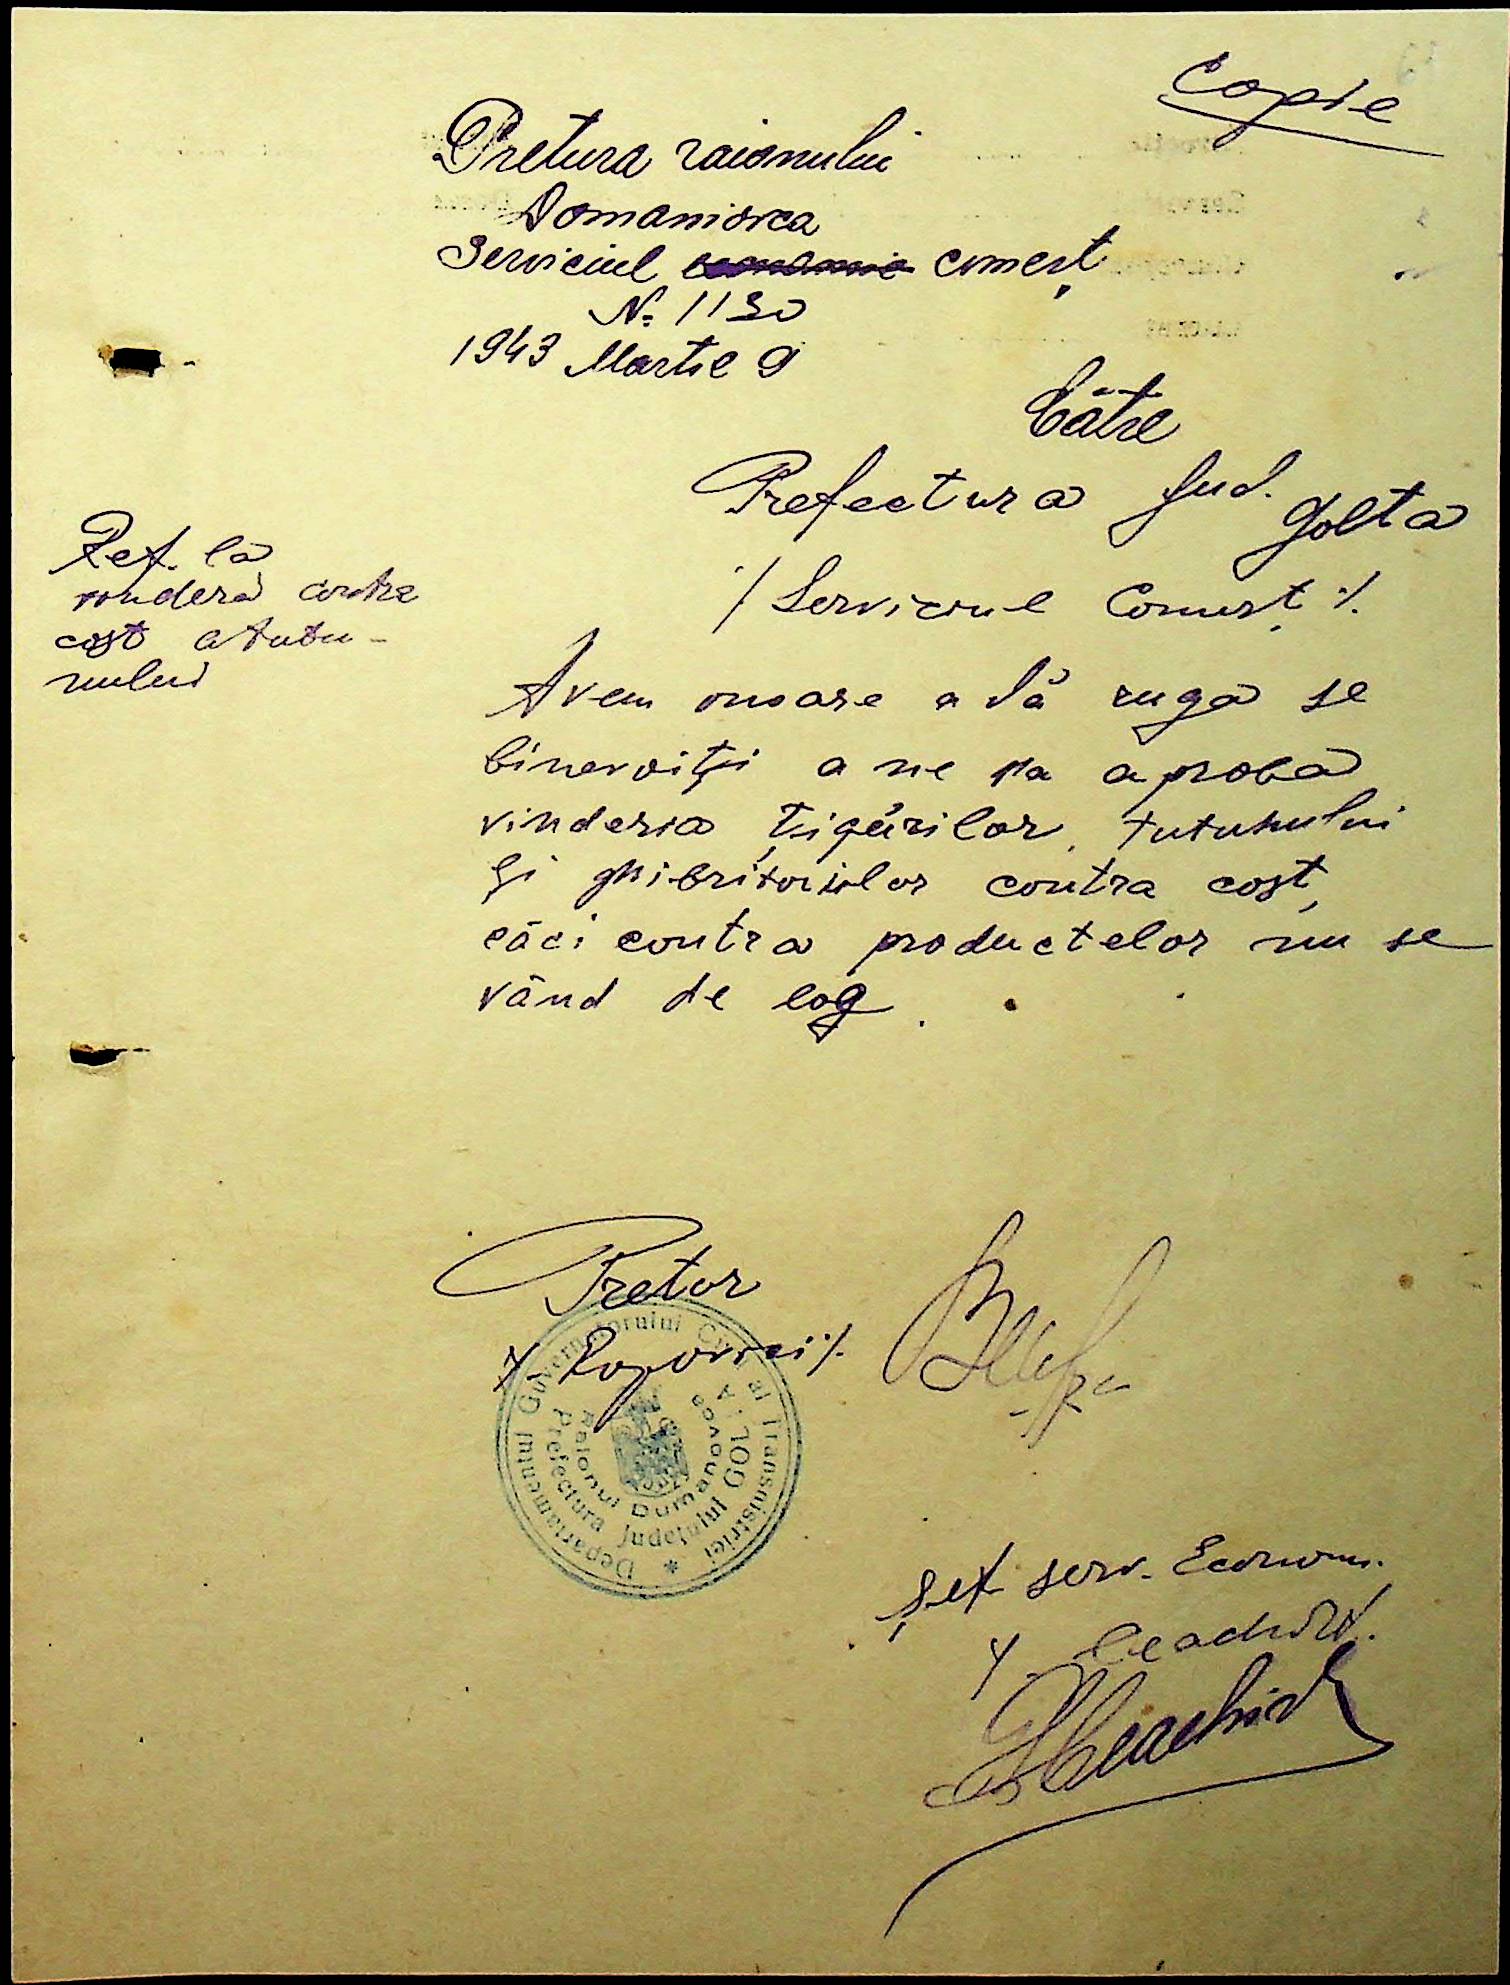 Copie
Pretura raionului
Domaniovca
Serviciul economic comerț
No. 1130
1943 Martie 9
Către
Prefectura Jud. Golta
/ Serviciul Comerț ./.
Ref. la
vinderea contra
cost a tutu-
nului
Avem onoare a Vă ruga se
binevoiți a ne va aproba
vinderia țigărilor, tutunului
și ghibriturilor contra cost,
căci contra productelor nu se
vând de log.
Pretor
Popovici /.
Departamentul Guvernatorului Civil al Transnistriei *
Prefectura Județului GOLTA
Raionul Dumanovca
Șef serv. Econom.